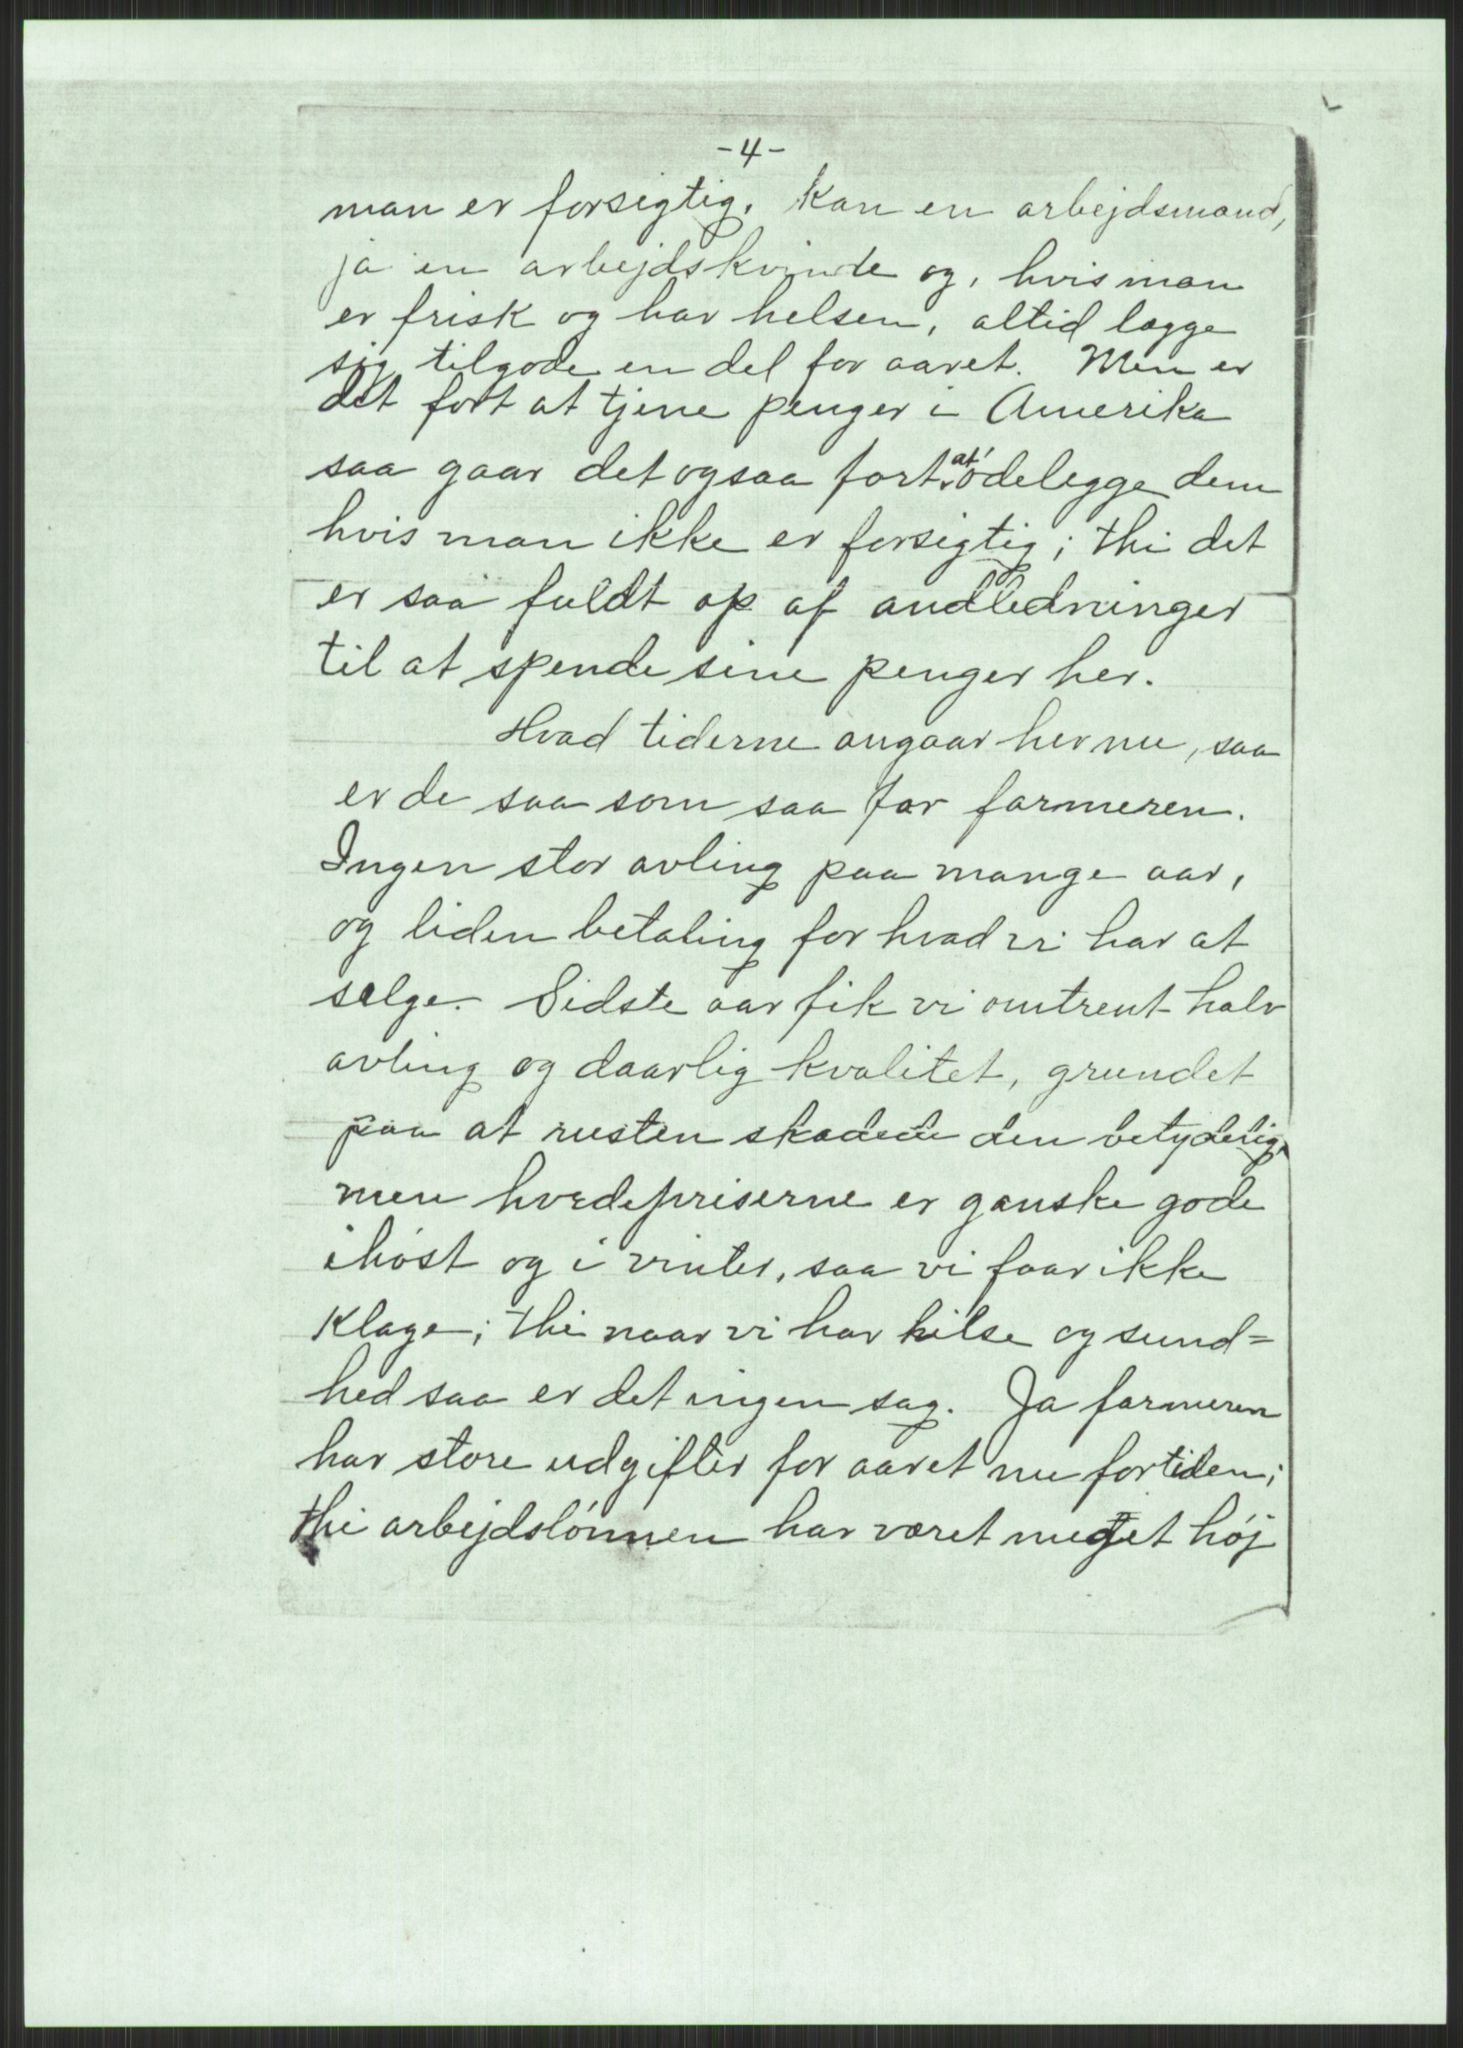 -4-
man er forsigtig. kan en arbejdsmand,
ja en arbejdskvinde og, hvis man
er frisk og har helsen, altid lægge
sig tilgode en del for aaret. Men er
det fort at tjene penger i Amerika
saa gaar det ogsaa fort at ødelegge dem
hvis man ikke er forsigtig; thi det
er saa fuldt op af andledninger
til at spende sine penger her.
Hvad tiderne angaar her nu, saa
er de saa som saa for farmeren.
Ingen stor avling paa mange aar,
og liden betaling for hvad vi har at
selge. Sidste aar fik vi omtrent halv
avling og daarlig kvalitet, grundet
paa at rusten skadede den betydelig,
men hvedepriserne er ganske gode
ihøst og i vinter, saa vi faar ikke
klage; thi naar vi har helse og sund=
hed saa er det ingen sag. Ja farmeren
har store udgifter for aaret nu fortiden;
thi arbejdslønnen har været meget høj